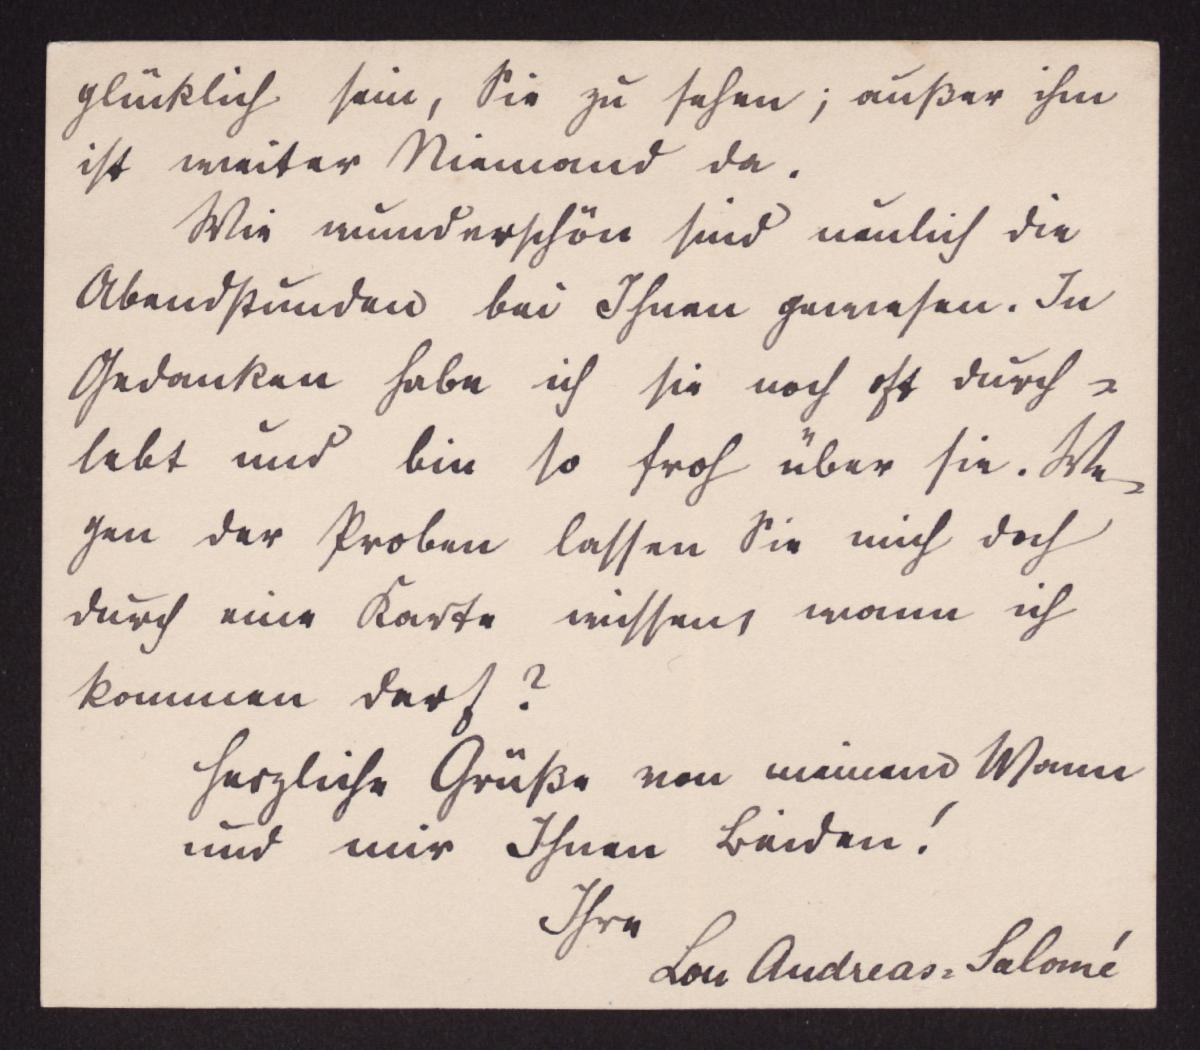 glücklich sein, Sie zu sehen; außer ihm
ist weiter Niemand da.
Wie wunderschön sind neulich die
Abendstunden bei Ihnen gewesen. In
Gedanken habe ich sie noch oft durch-
lebt und bin so froh über sie. We-
gen der Proben lassen Sie mich doch
durch eine Karte wissen, wann ich
kommen darf?
Herzliche Grüße von meinem Mann
und mir Ihnen Beiden!
Ihre
Lou Andreas-Salomé